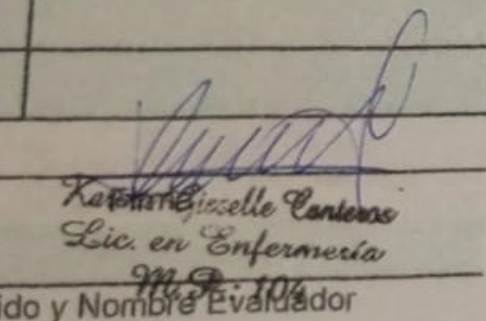 Gisselle Canteros
Lic. en Enfermería
M.P. 104
ido y Nombre Evaluador